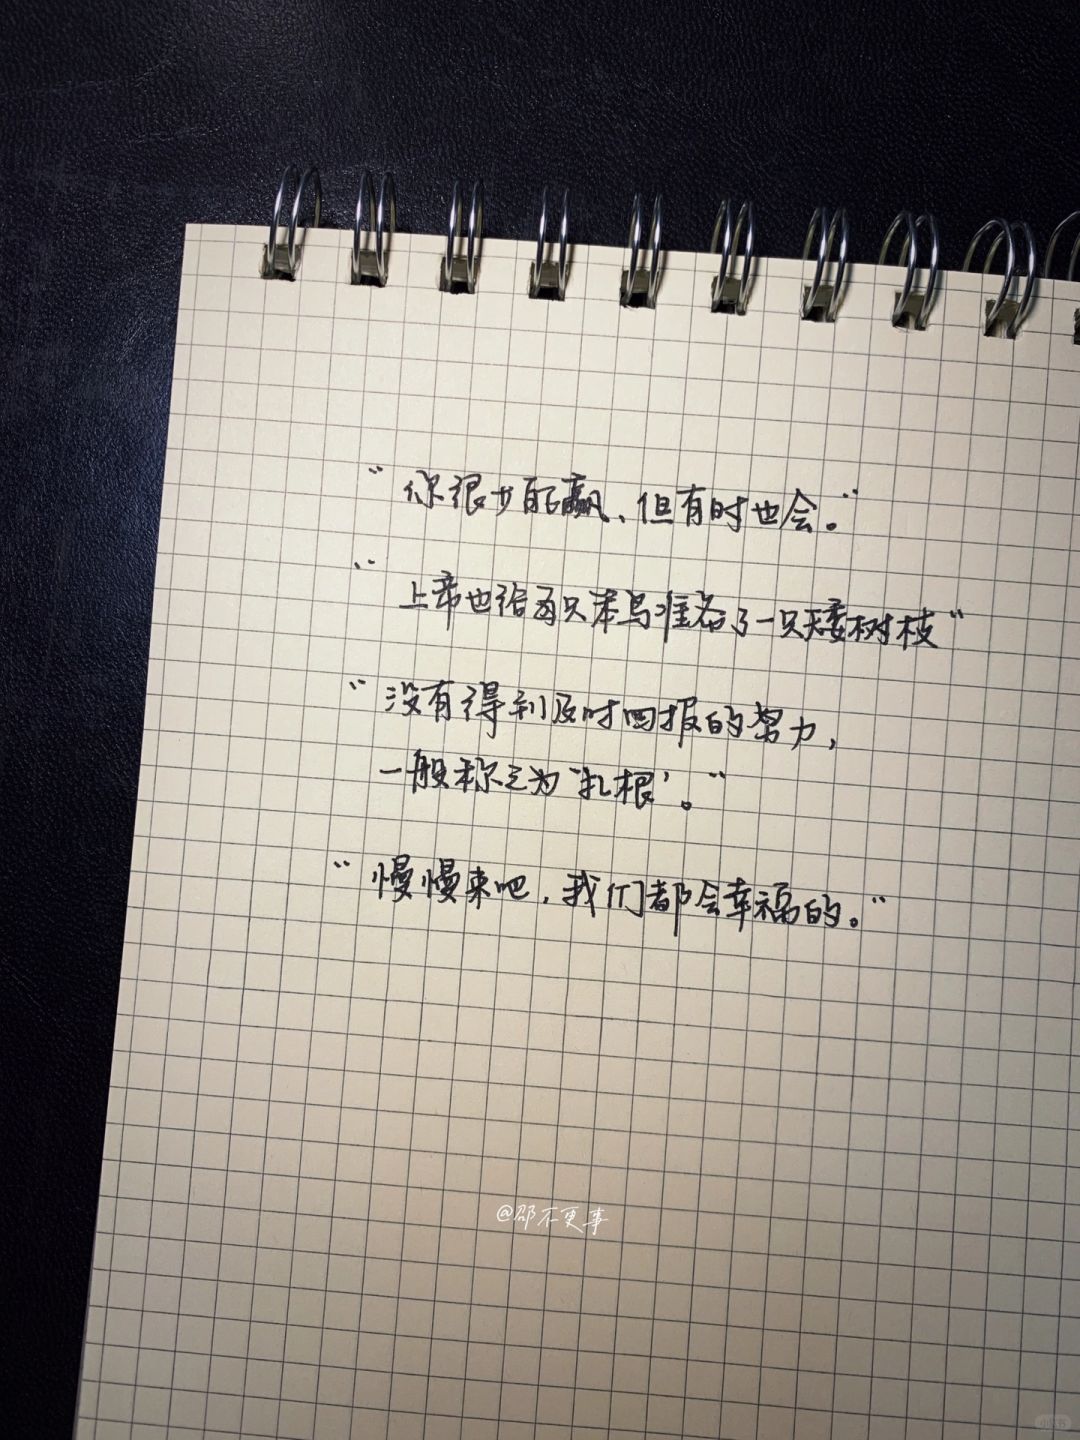 “你很少能赢，但有时也会。”
“上帝也给每只笨鸟准备了一只矮树枝”
“没有得到及时回报的努力，
一般称之为‘扎根’。”
“慢慢来吧，我们都会幸福的。”
@邵不更事
小红书